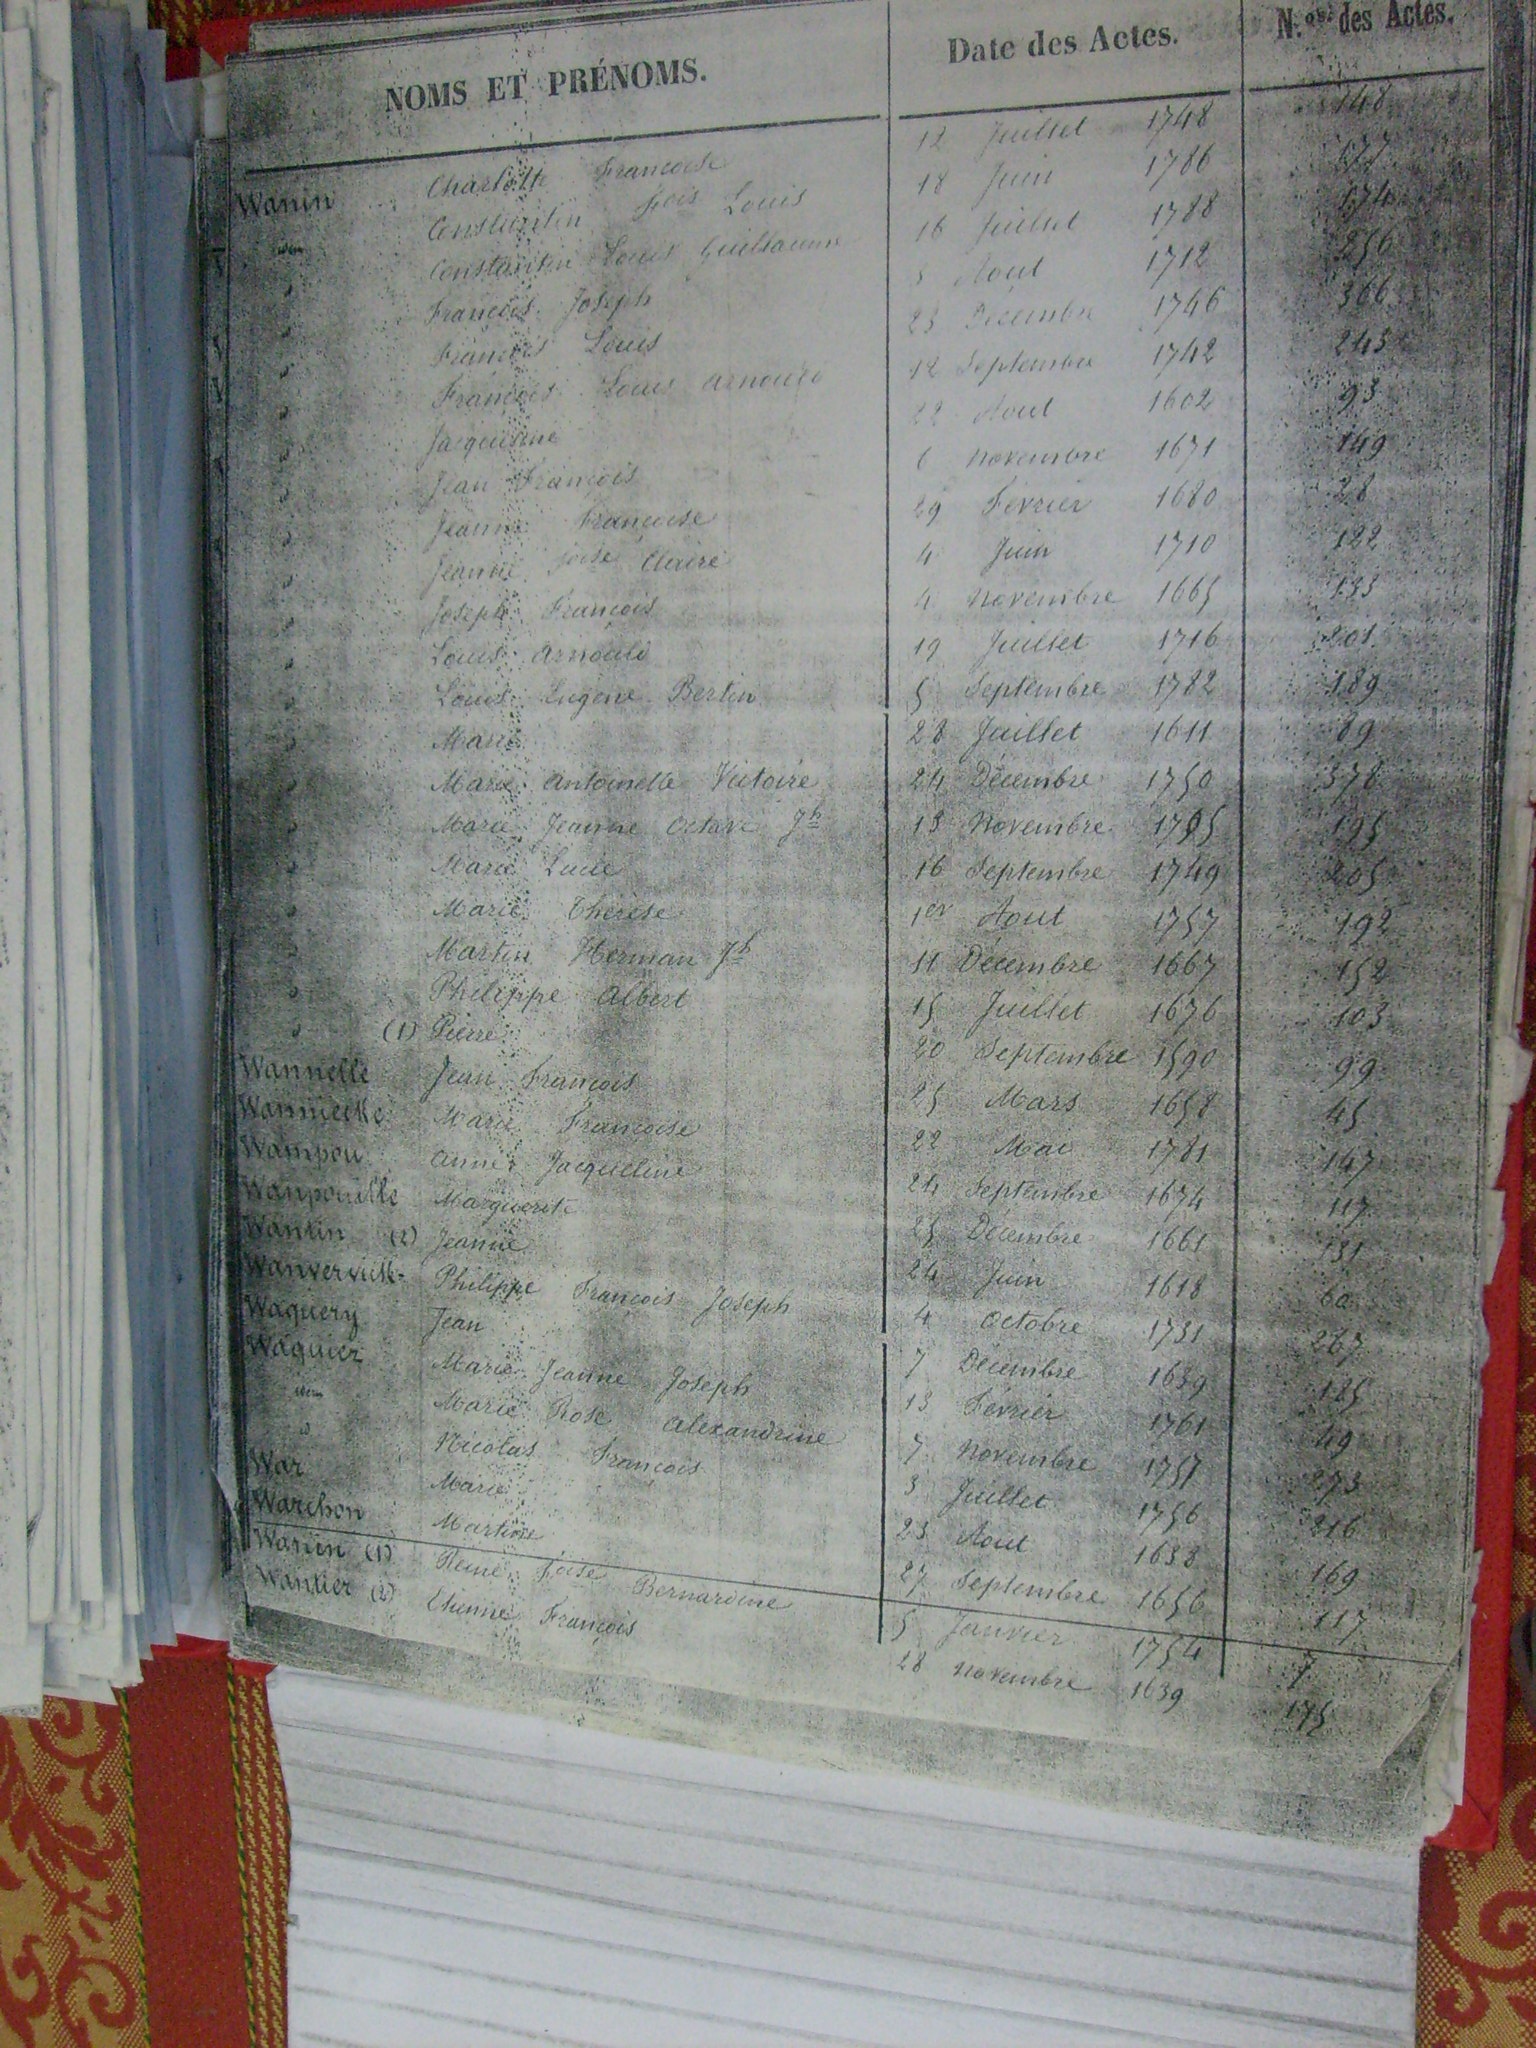 NOMS ET PRÉNOMS. Date des Actes. N.os des Actes.
Wanin Charlotte Françoise 12 Juillet 1748 148
idem Constantin fois Louis 18 Juin 1786 177
" Constantin Louis Guillaume 16 Juillet 1788 174
" François Joseph 5 Aout 1712 256
" François Louis 23 Décembre 1746 366
" François Louis Arnould 12 Septembre 1742 243
" Jacqueline 22 Aout 1602 93
" Jean François 6 Novembre 1671 149
" Jeanne Françoise 29 Février 1680 28
" Jeanne foise Claire 4 Juin 1710 122
" Joseph François 4 Novembre 1665 133
" Louis Arnould 19 Juillet 1716 201
" Louis Eugène Bertin 5 Septembre 1782 189
" Marie 28 Juillet 1611 89
" Marie Antoinette Victoire 24 Décembre 1750 378
" Marie Jeanne Octave Jh 13 Novembre 1795 195
" Marie Lucie 16 Septembre 1749 205
" Marie Thérèse 1er Aout 1757 192
" Martin Herman Jh 11 Décembre 1667 152
" Philippe Albert 15 Juillet 1676 103
" (1) Pierre 20 Septembre 1590 99
Wannelle Jean François 25 Mars 1658 45
Wannecke Marie Françoise 22 Mai 1781 147
Wampou Anne Jacqueline 24 Septembre 1674 117
Wanpouille Marguerite 25 Décembre 1661 131
Wantin (2) Jeanne 24 Juin 1618 60
Philippe François Joseph 4 Octobre 1731 267
Waquery Jean 7 Décembre 1639 185
Waquier Marie Jeanne Joseph 13 Février 1761 49
idem Marie Rose Alexandrine 7 Novembre 1757 273
" Nicolas François 3 Juillet 1756 216
War Marie 23 Aout 1638 169
Warchon Martine 27 Septembre 1656 117
Wanin (1) Reine foise Bernardine 5 Janvier 1754 7
Wantier (2) Etienne François 28 Novembre 1639 175